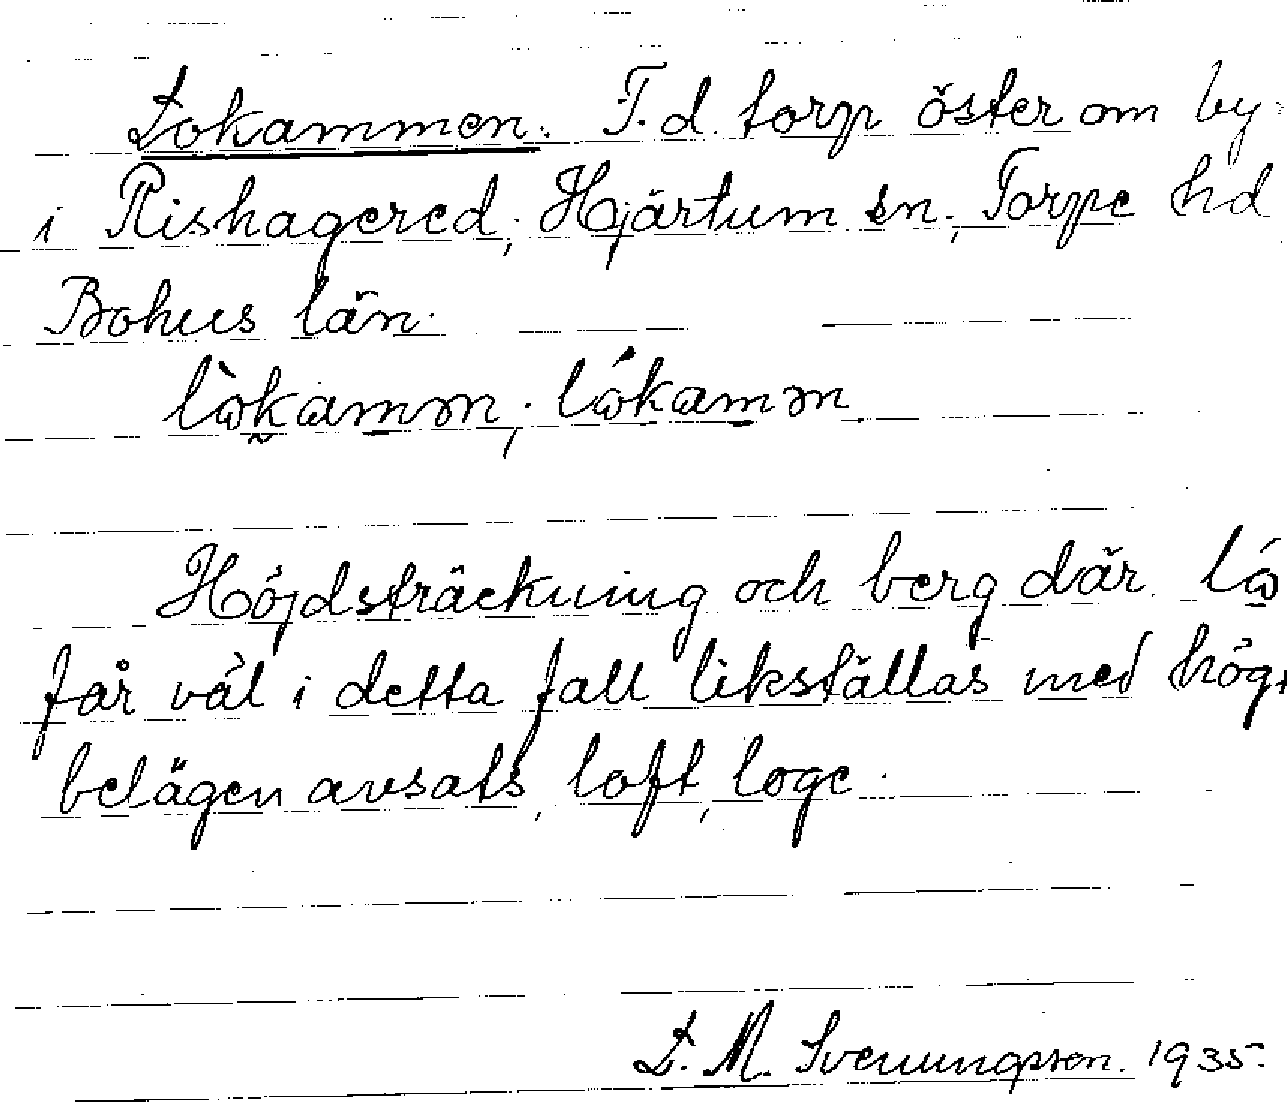 Lokammen. F.d. torp öster om by:
i Rishagered, Hjärtum sn., Torpe hd
Bohus län.
lòkamən, lókamən
Höjdsträckning och berg där ló
får väl i detta fall likställas med hög,
belägen avsats, loft, loge.
L. M. Svenungsson. 1935.